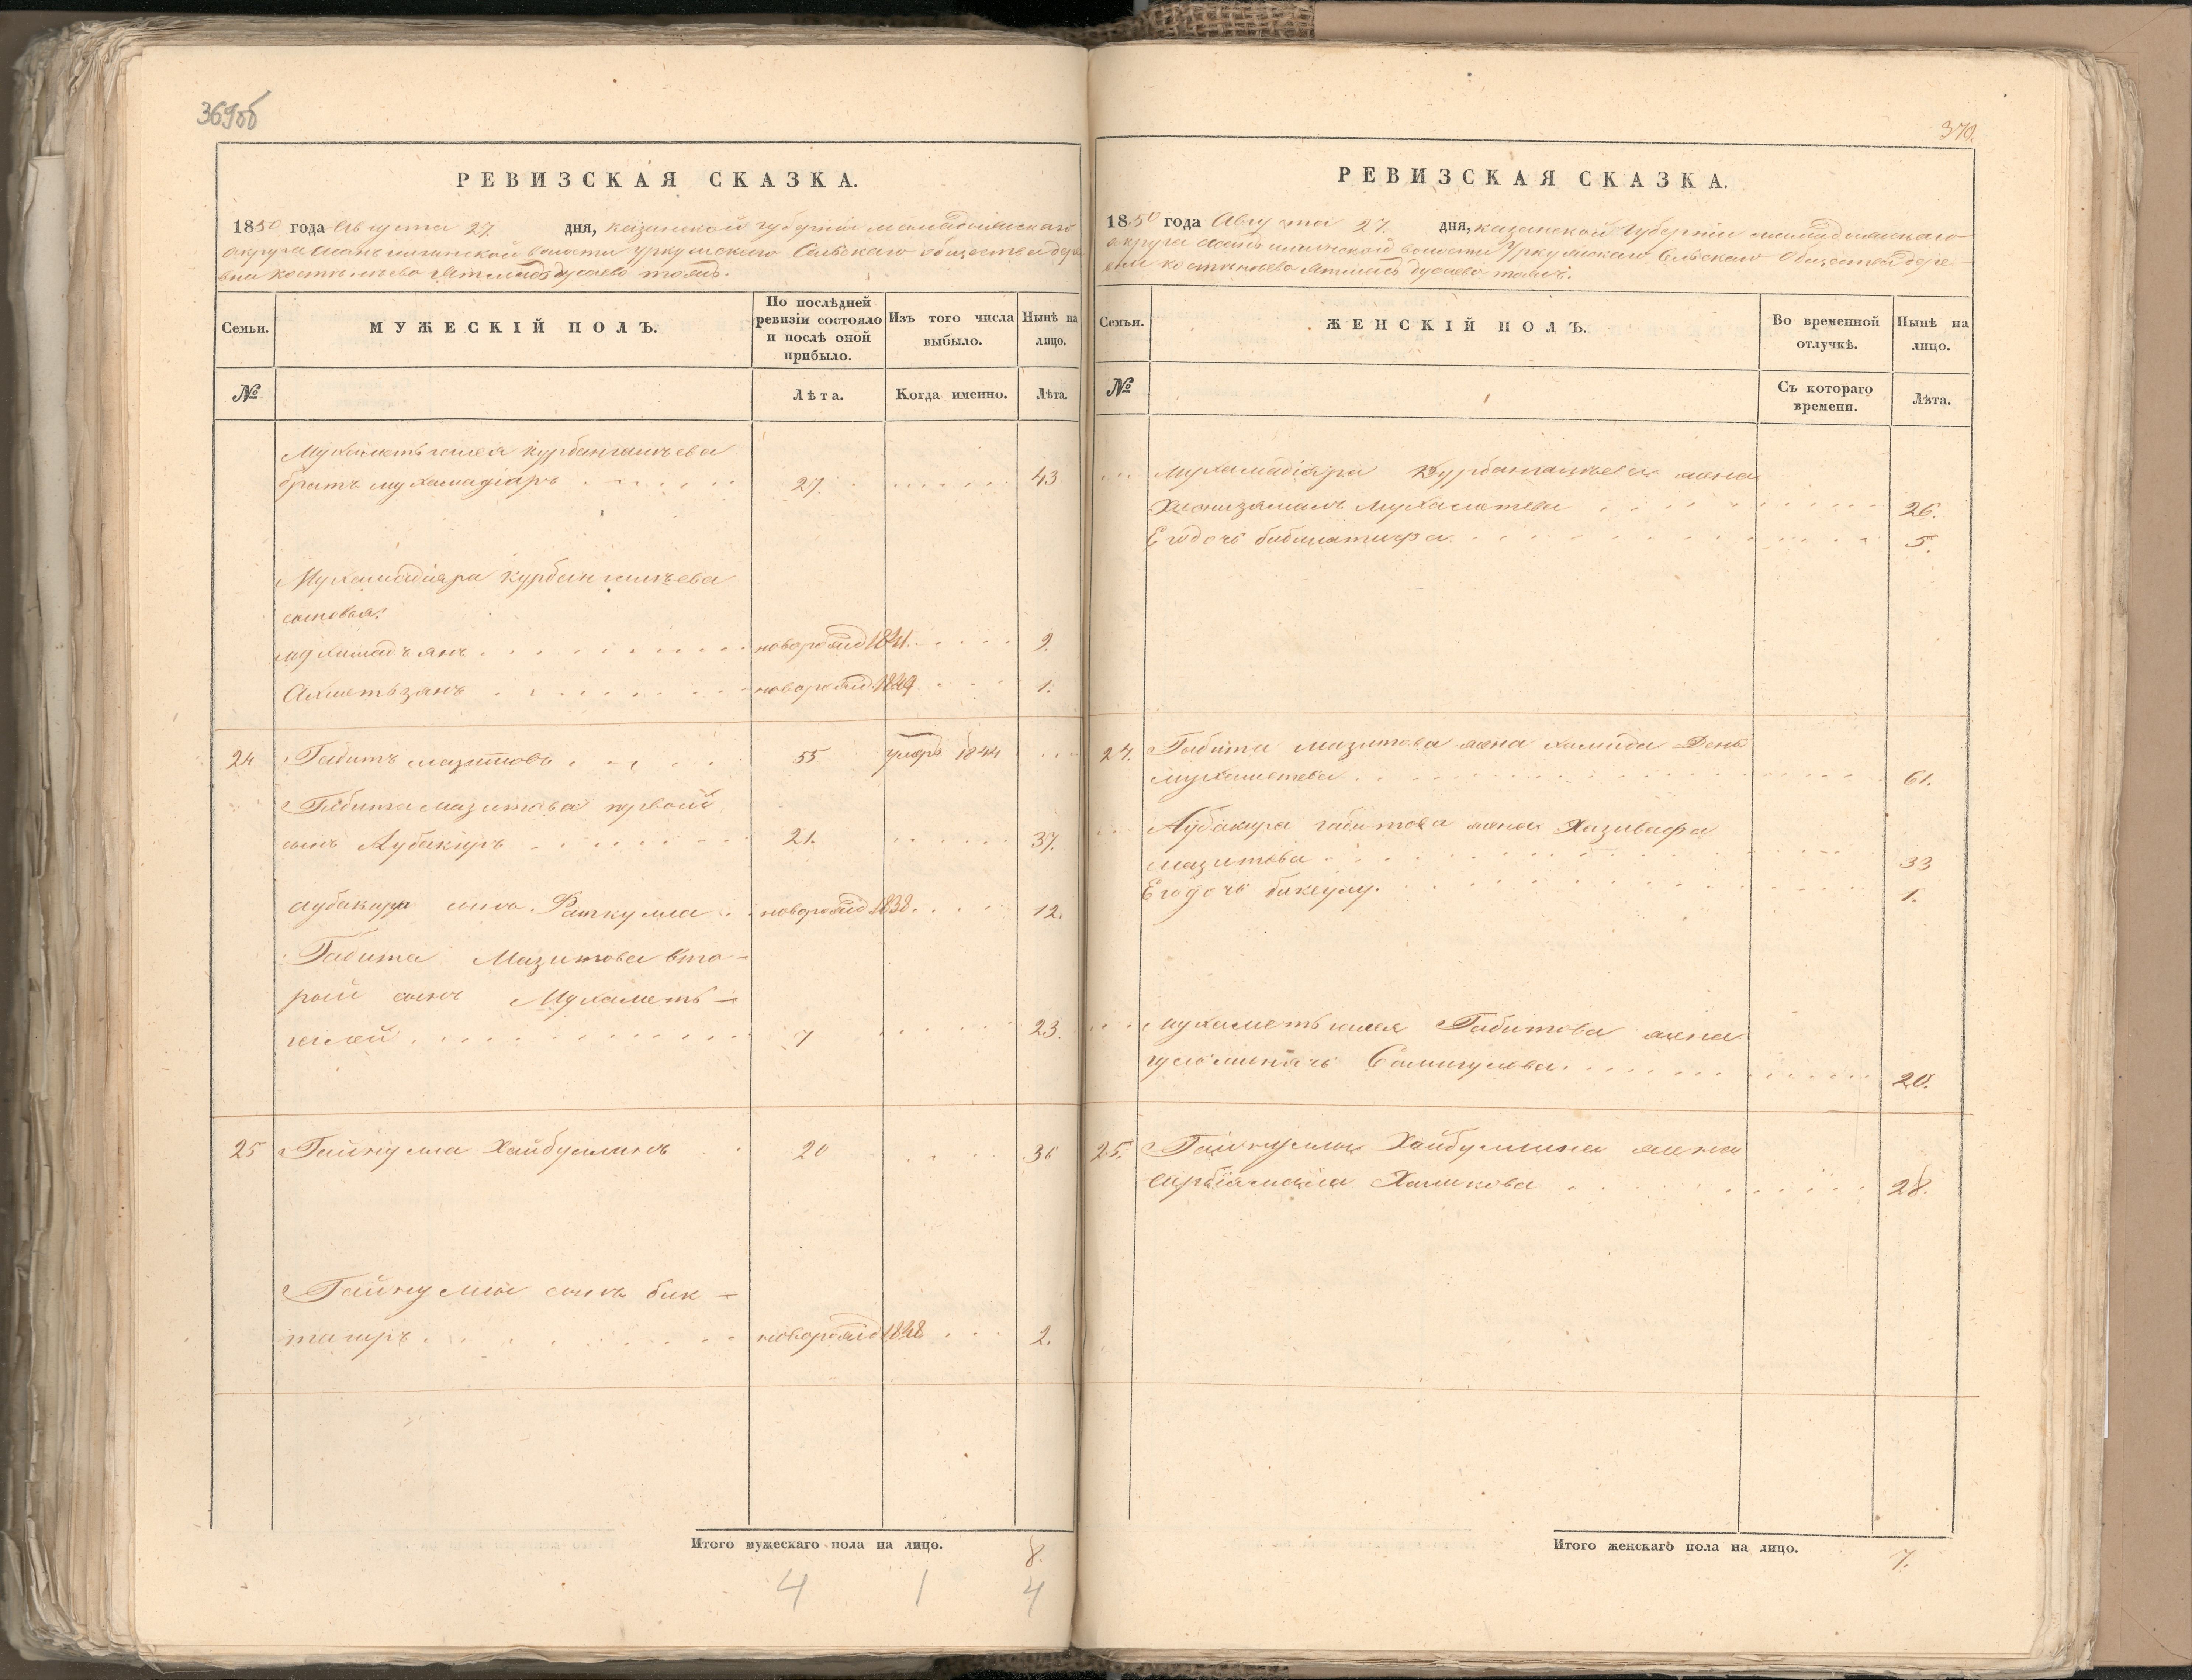 369об
РЕВИЗСКАЯ СКАЗКА.
1850 года Августа 27. дня, казанской губерніи мамадышскаго
округа волости Уркушскаго Сельскаго общества дере
вни
Семьи.
МУЖЕСКІЙ ПОЛЪ.
По послѣдней ревизіи состояло и послѣ оной прибыло.
Изъ того числа выбыло.
Нынѣ на лицо.
№
Лѣта.
Когда именно.
Лѣта.
Мухаметьгалея Курбангалѣева
братъ мухамадіаръ 27. 43
Мухамадіяра Курбангалѣева
сыновья:
мухамадъянъ новорожд 1841. 9.
Ахметьзянъ новорожд 1849 1.
24 Габитъ мазитовъ 55 умеръ 1844
Габита мазитова первой
сынъ Аубакиръ 21. 37.
аубакира сынъ Раткулла новорожд 1838. 12.
Габита Мазитова вто-
рой сынъ Мухаметь-
галей 7 23.
25 Гайнулла Хайбуллинъ 20 36
Гайнуллы сынъ бик-
тагиръ новорожд 1848 2.
Итого мужескаго пола на лицо. 8.
4 1 4
370.
РЕВИЗСКАЯ СКАЗКА.
1850 года Августа 27. дня, казанской Губерніи мамадышскаго
округа волости Уркушскаго Сельскаго Общества дере-
вни
Семьи.
ЖЕНСКІЙ ПОЛЪ.
Во временной отлучкѣ.
Нынѣ на лицо.
№
Съ котораго времени.
Лѣта.
Мухамадіяра Курбангалѣева жена
Мухаметева 26.
Его дочь 5.
24. Габита мазитова жена хамида
мухаметева 61.
Аубакира габитова жена
мазитова 33
Его дочь 1.
мухаметьгалея Габитова жена
Самигулова 20.
25. Гайнуллы Хайбуллина жена
Халикова 28.
Итого женскаго пола на лицо. 7.